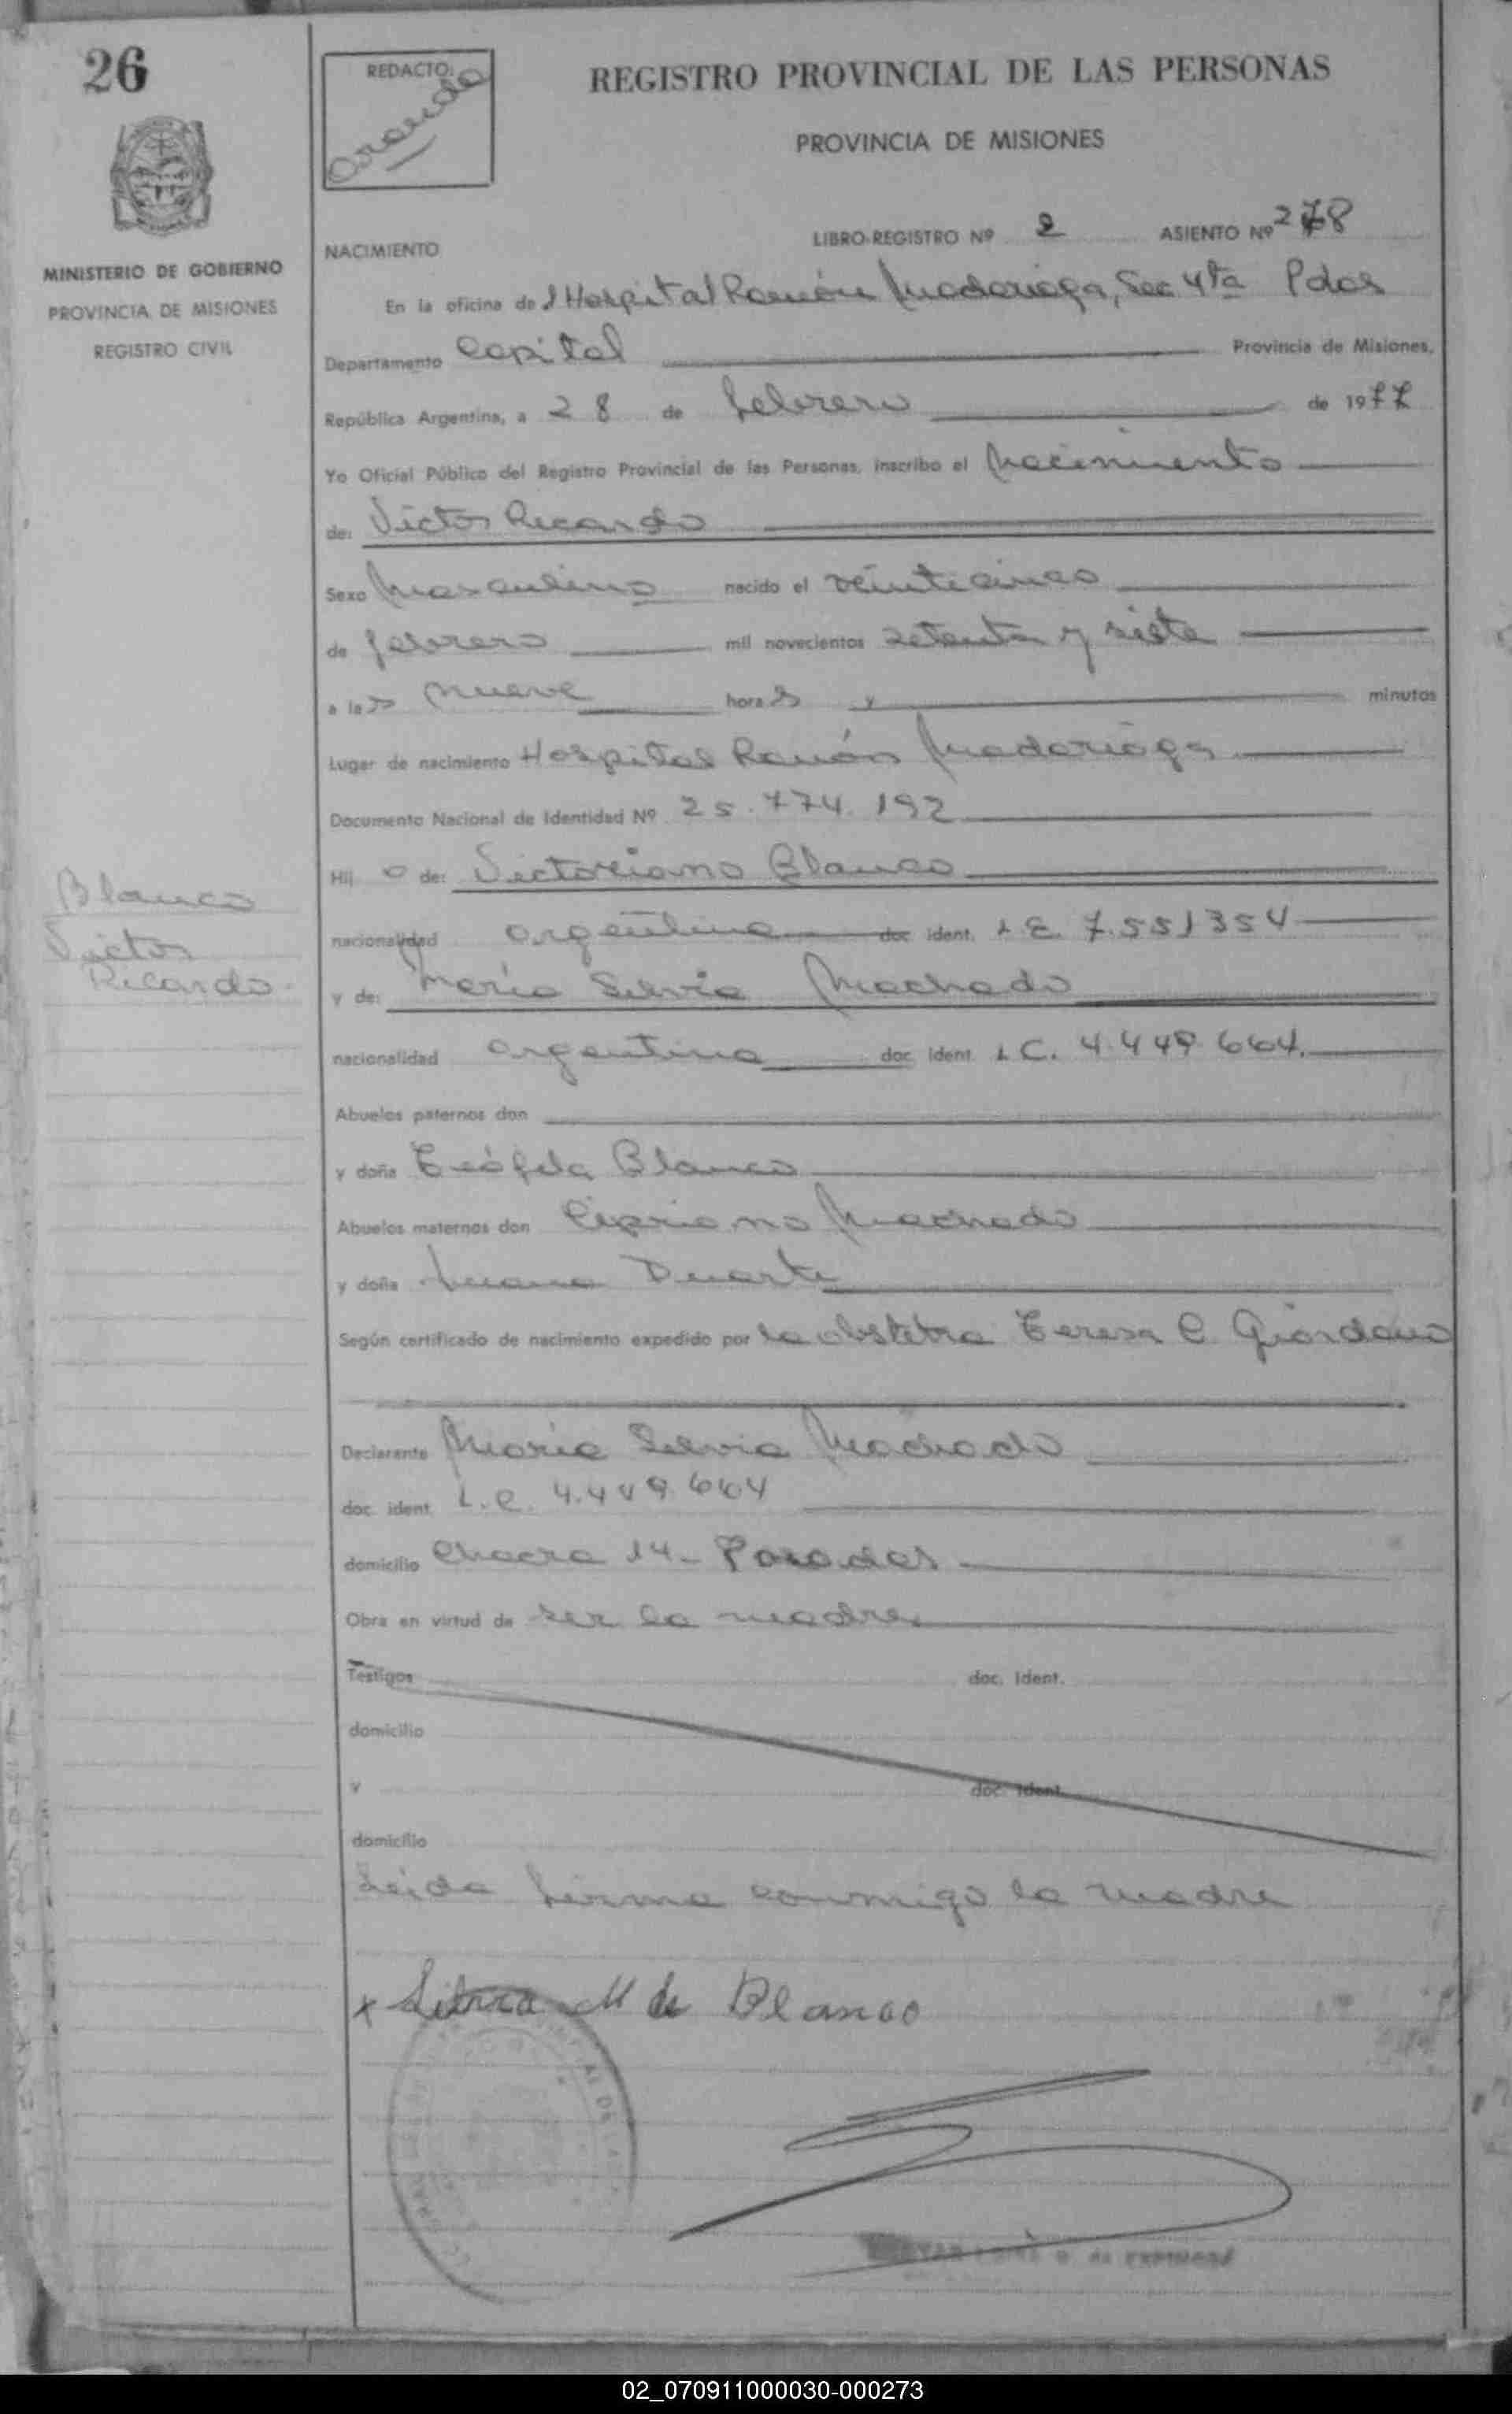 26
REDACTO:
Aranda
REGISTRO PROVINCIAL DE LAS PERSONAS
PROVINCIA DE MISIONES
MINISTERIO DE GOBIERNO
PROVINCIA DE MISIONES
REGISTRO CIVIL
LIBRO-REGISTRO Nº 2 ASIENTO Nº 278
NACIMIENTO
En la oficina del Hospital Ramón Madariaga, Sec 4ta Pdas
Departamento Capital Provincia de Misiones,
República Argentina, a 28 de febrero de 1977
Yo Oficial Público del Registro Provincial de las Personas, inscribo el Nacimiento
de: Victor Ricardo
Sexo Masculino nacido el veinticinco
de febrero mil novecientos setenta y siete
a las nueve horas y minutos
Lugar de nacimiento Hospital Ramón Madariaga
Documento Nacional de Identidad Nº 25.774.192
Hijo de: Victoriano Blanco
nacionalidad argentina doc ident. L E. 7.551354
y de: María Silvia Machado
nacionalidad argentina doc ident L C. 4.449.664.
Abuelos paternos don
y doña Teófila Blanco
Abuelos maternos don Cipriano Machado
y doña Juana Duarte
Según certificado de nacimiento expedido por la obstetra Teresa C. Giordano
Declarante María Silvia Machado
doc. ident. L.C. 4.449.664
domicilio Chacra 14- Posadas
Obra en virtud de ser la madre.
Testigos doc. Ident.
domicilio
y doc. Ident.
domicilio
Leída firma conmigo la madre
x Silvia M de Blanco
Blanco
Victor
Ricardo
02_070911000030-000273